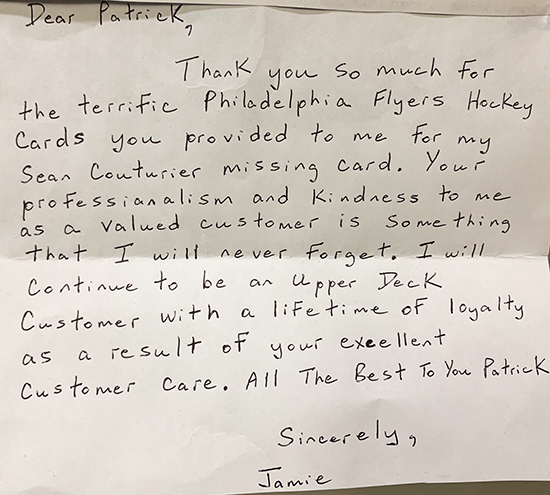 Dear Patrick,
Thank you so much for
the terrific Philadelphia Flyers Hockey
Cards you provided to me for my
Sean Couturier missing card. Your
professianalism and kindness to me
as a valued customer is something
that I will never forget. I will
Continue to be an Upper Deck
Customer with a lifetime of loyalty
as a result of your excellent
Customer care. All The Best To You Patrick
Sincerely,
Jamie